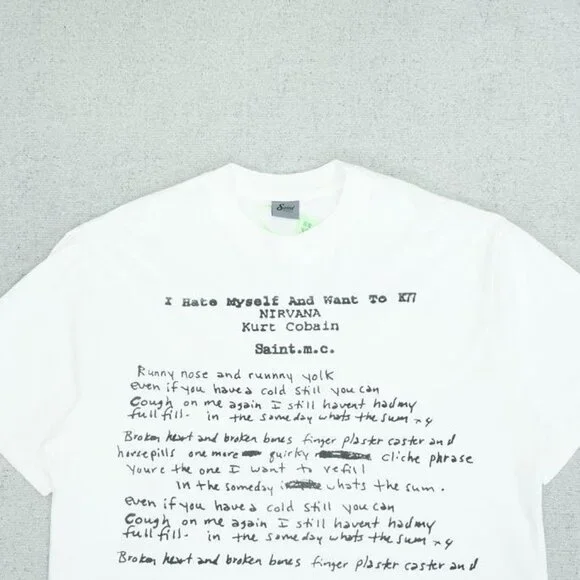 Saint
I Hate Myself And Want To K77
NIRVANA
Kurt Cobain
Saint.m.c.
Runny nose and runnny yolk
even if you have a cold still you can
Cough on me again I still havent had my
full fill- in the someday whats the sum x4
Broken heart and broken bones finger plaster caster and
horsepills one more quirky cliche phrase
Youre the one I want to refill
in the someday whats the sum.
even if you have a cold still you can
Cough on me again I still havent had my
full fill- in the someday whats the sum x4
Broken heart and broken bones finger plaster caster and